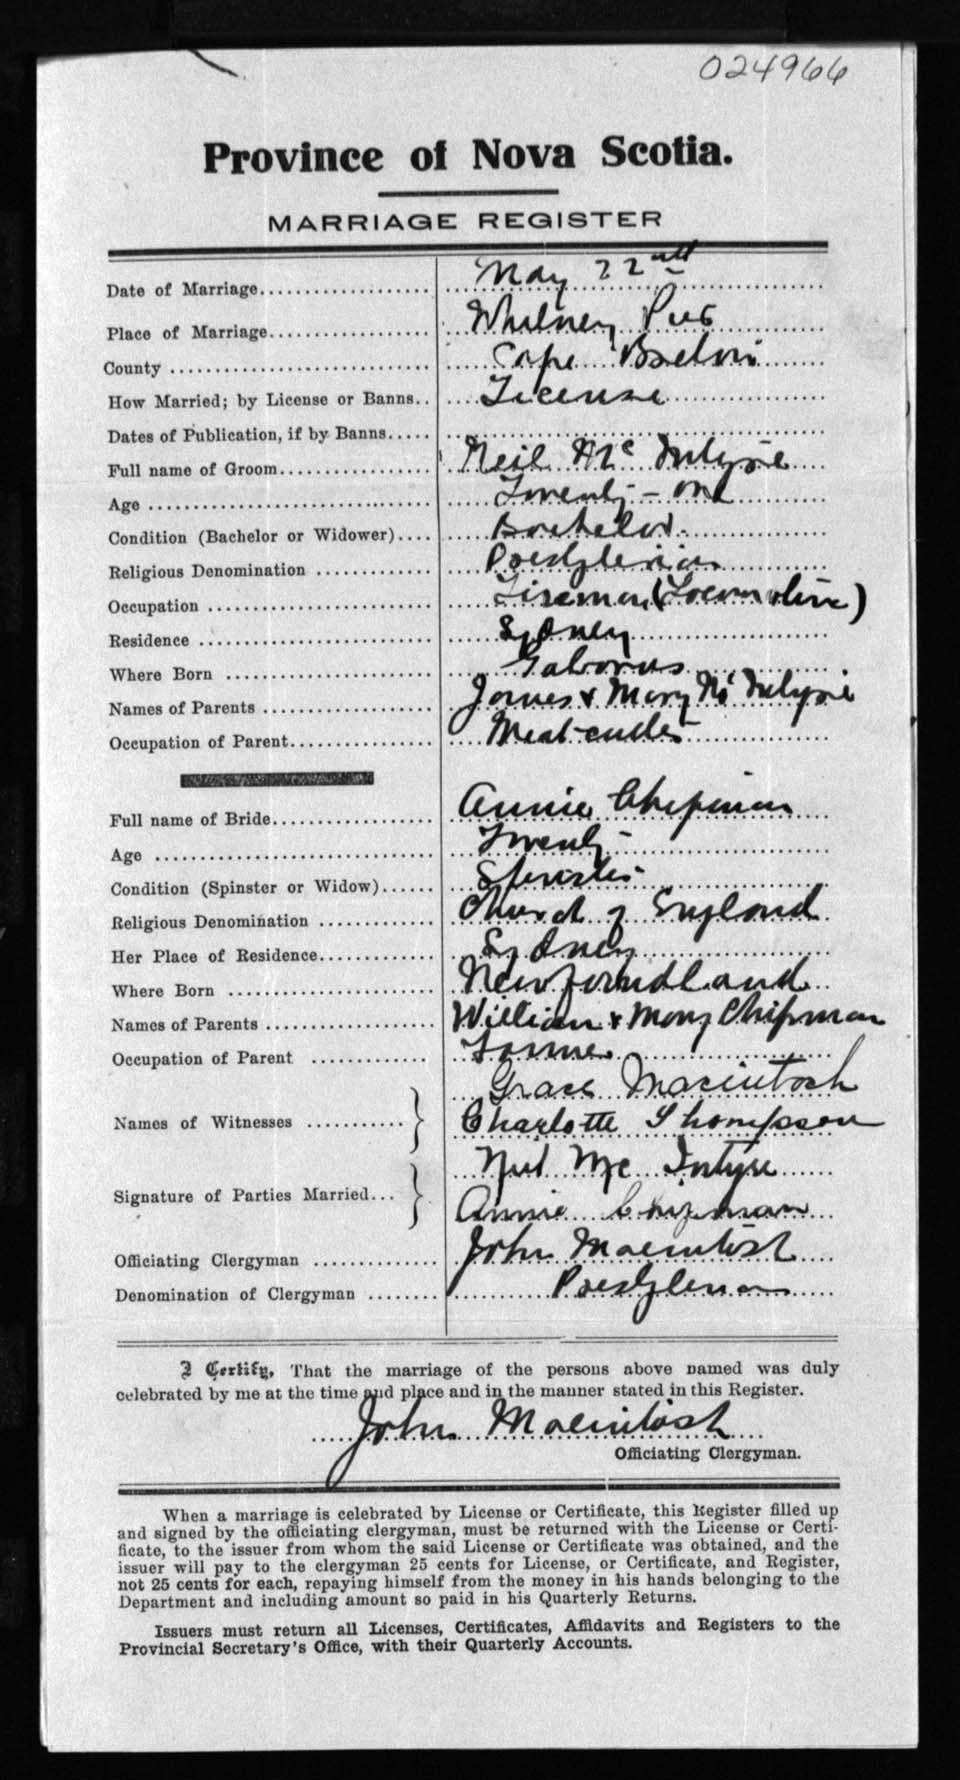 024966
Province of Nova Scotia.
MARRIAGE REGISTER
Date of Marriage.................... May 22nd
Place of Marriage.................. Whitney Pier
County ............................. Cape Breton
How Married; by License or Banns.. License
Dates of Publication, if by Banns.....
Full name of Groom................. Neil Mc Intyre
Age ............................... Twenty - one
Condition (Bachelor or Widower).... Bachelor.
Religious Denomination ............. Presbyterian
Occupation ......................... Fireman (Locomotive)
Residence .......................... Sydney
Where Born ....................... Gabarus
Names of Parents ................... James & Mary Mc Intyre
Occupation of Parent................ Meat-cutter
Full name of Bride.................. Annie Chipman
Age ............................... Twenty -
Condition (Spinster or Widow)...... Spinster
Religious Denomination ............. Church of England
Her Place of Residence............. Sydney
Where Born ....................... Newfoundland
Names of Parents ................... William & Mary Chipman
Occupation of Parent ............. Farmer
Grace Macintosh
Names of Witnesses ........... } Charlotte Thompson
Neil Mc Intyre
Signature of Parties Married... } Annie Chipman
Officiating Clergyman .............. John Macintosh
Denomination of Clergyman ........ Presbyterian
I Certify, That the marriage of the persons above named was duly
celebrated by me at the time and place and in the manner stated in this Register.
John Macintosh
Officiating Clergyman.
When a marriage is celebrated by License or Certificate, this Register filled up
and signed by the officiating clergyman, must be returned with the License or Certi-
ficate, to the issuer from whom the said License or Certificate was obtained, and the
issuer will pay to the clergyman 25 cents for License, or Certificate, and Register,
not 25 cents for each, repaying himself from the money in his hands belonging to the
Department and including amount so paid in his Quarterly Returns.
Issuers must return all Licenses, Certificates, Affidavits and Registers to the
Provincial Secretary's Office, with their Quarterly Accounts.